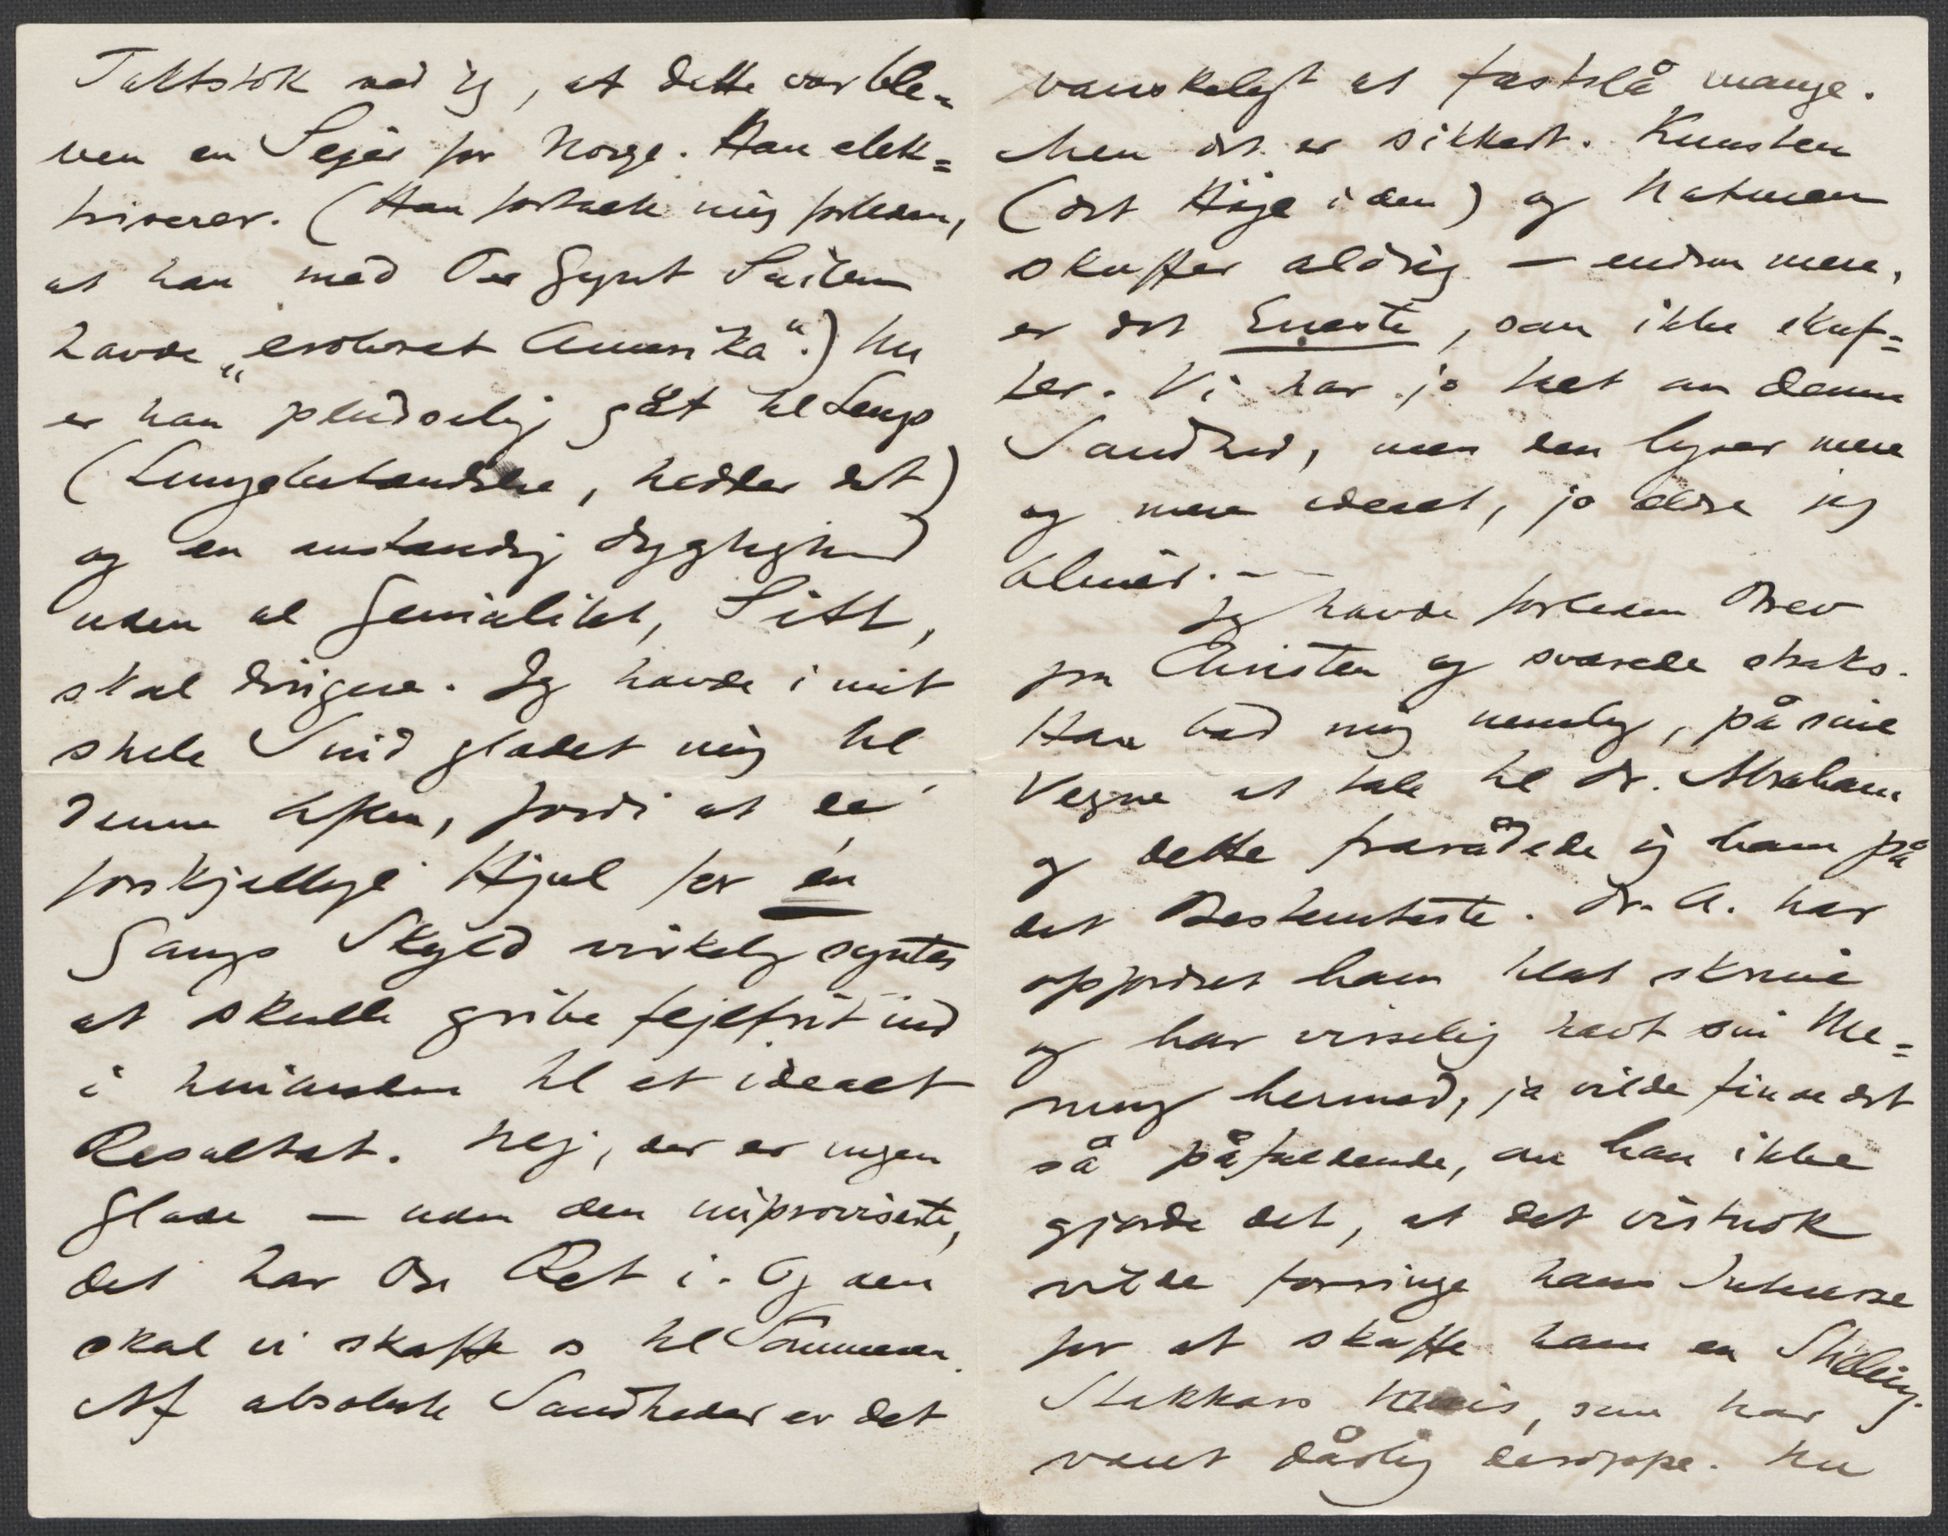 Taktstok ved jeg, at dette var ble=
ven en Sejer for Norge. Han elek=
triserer. (Han fortalte mig forleden,
at han med Peer Gynt Suiten
havde „erobret Amerika“.) Nu
er han pludselig gåt til Sengs
(Lungebetændelse, hedder det)
og en anstændig Dygtighed
uden al Genialitet, Sitt,
skal dirigere. Jeg havde i mit
stille Sind glædet mig til
denne Aften, fordi at de
forskjellige Hjul for én
Gangs Skyld virkelig syntes
at skulle gribe fejlfrit ind
i hinanden til et ideelt
Resultat. Nej, der er ingen
Glæde – uden den improviserte,
det har Du Ret i. Og den
skal vi skaffe os til Sommeren.
Af absolute Sandheder er det
vanskeligt at fastslå mange.
Men det er sikkert. Kunsten
(det Høje i den) og Naturen
skuffer aldrig – endnu mere,
er det Eneste, som ikke skuf=
fer. Vi har jo talt om denne
Sandhed, men den lyser mere
og mere ideelt, jo ældre jeg
bliver. – –
Jeg havde forleden Brev
fra Christen og svarede straks.
Han bad mig nemlig, på sine
Vegne at tale til Dr. Abraham
og dette frarådede jeg ham på
det Bestemteste. Dr. A. har
opfordret ham til at skrive
og har visselig havt sin Me=
ning hermed, ja vilde finde det
så påfaldende, om han ikke
gjorde det, at det vistnok
vilde forringe hans Interesse
for at skaffe ham en Stilling.
Stakkars, som har
været dårlig deroppe. Nu